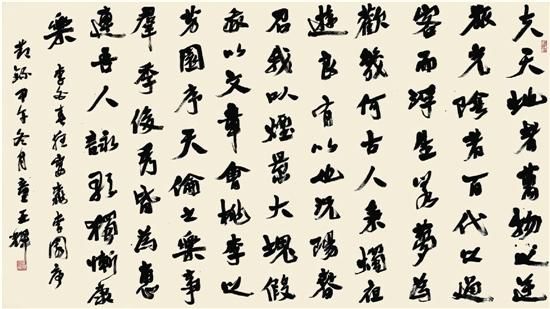 夫天地者萬物之逆
旅光陰者百代之過
客而浮生若夢為
歡幾何古人秉燭夜
遊良有以也況陽春
召我以煙景大塊假
我以文章會桃李之
芳園序天倫之樂事
羣季俊秀皆為惠
連吾人詠歌獨慚康
樂 李白春夜宴桃李園序
節錄甲午冬月童亞輝